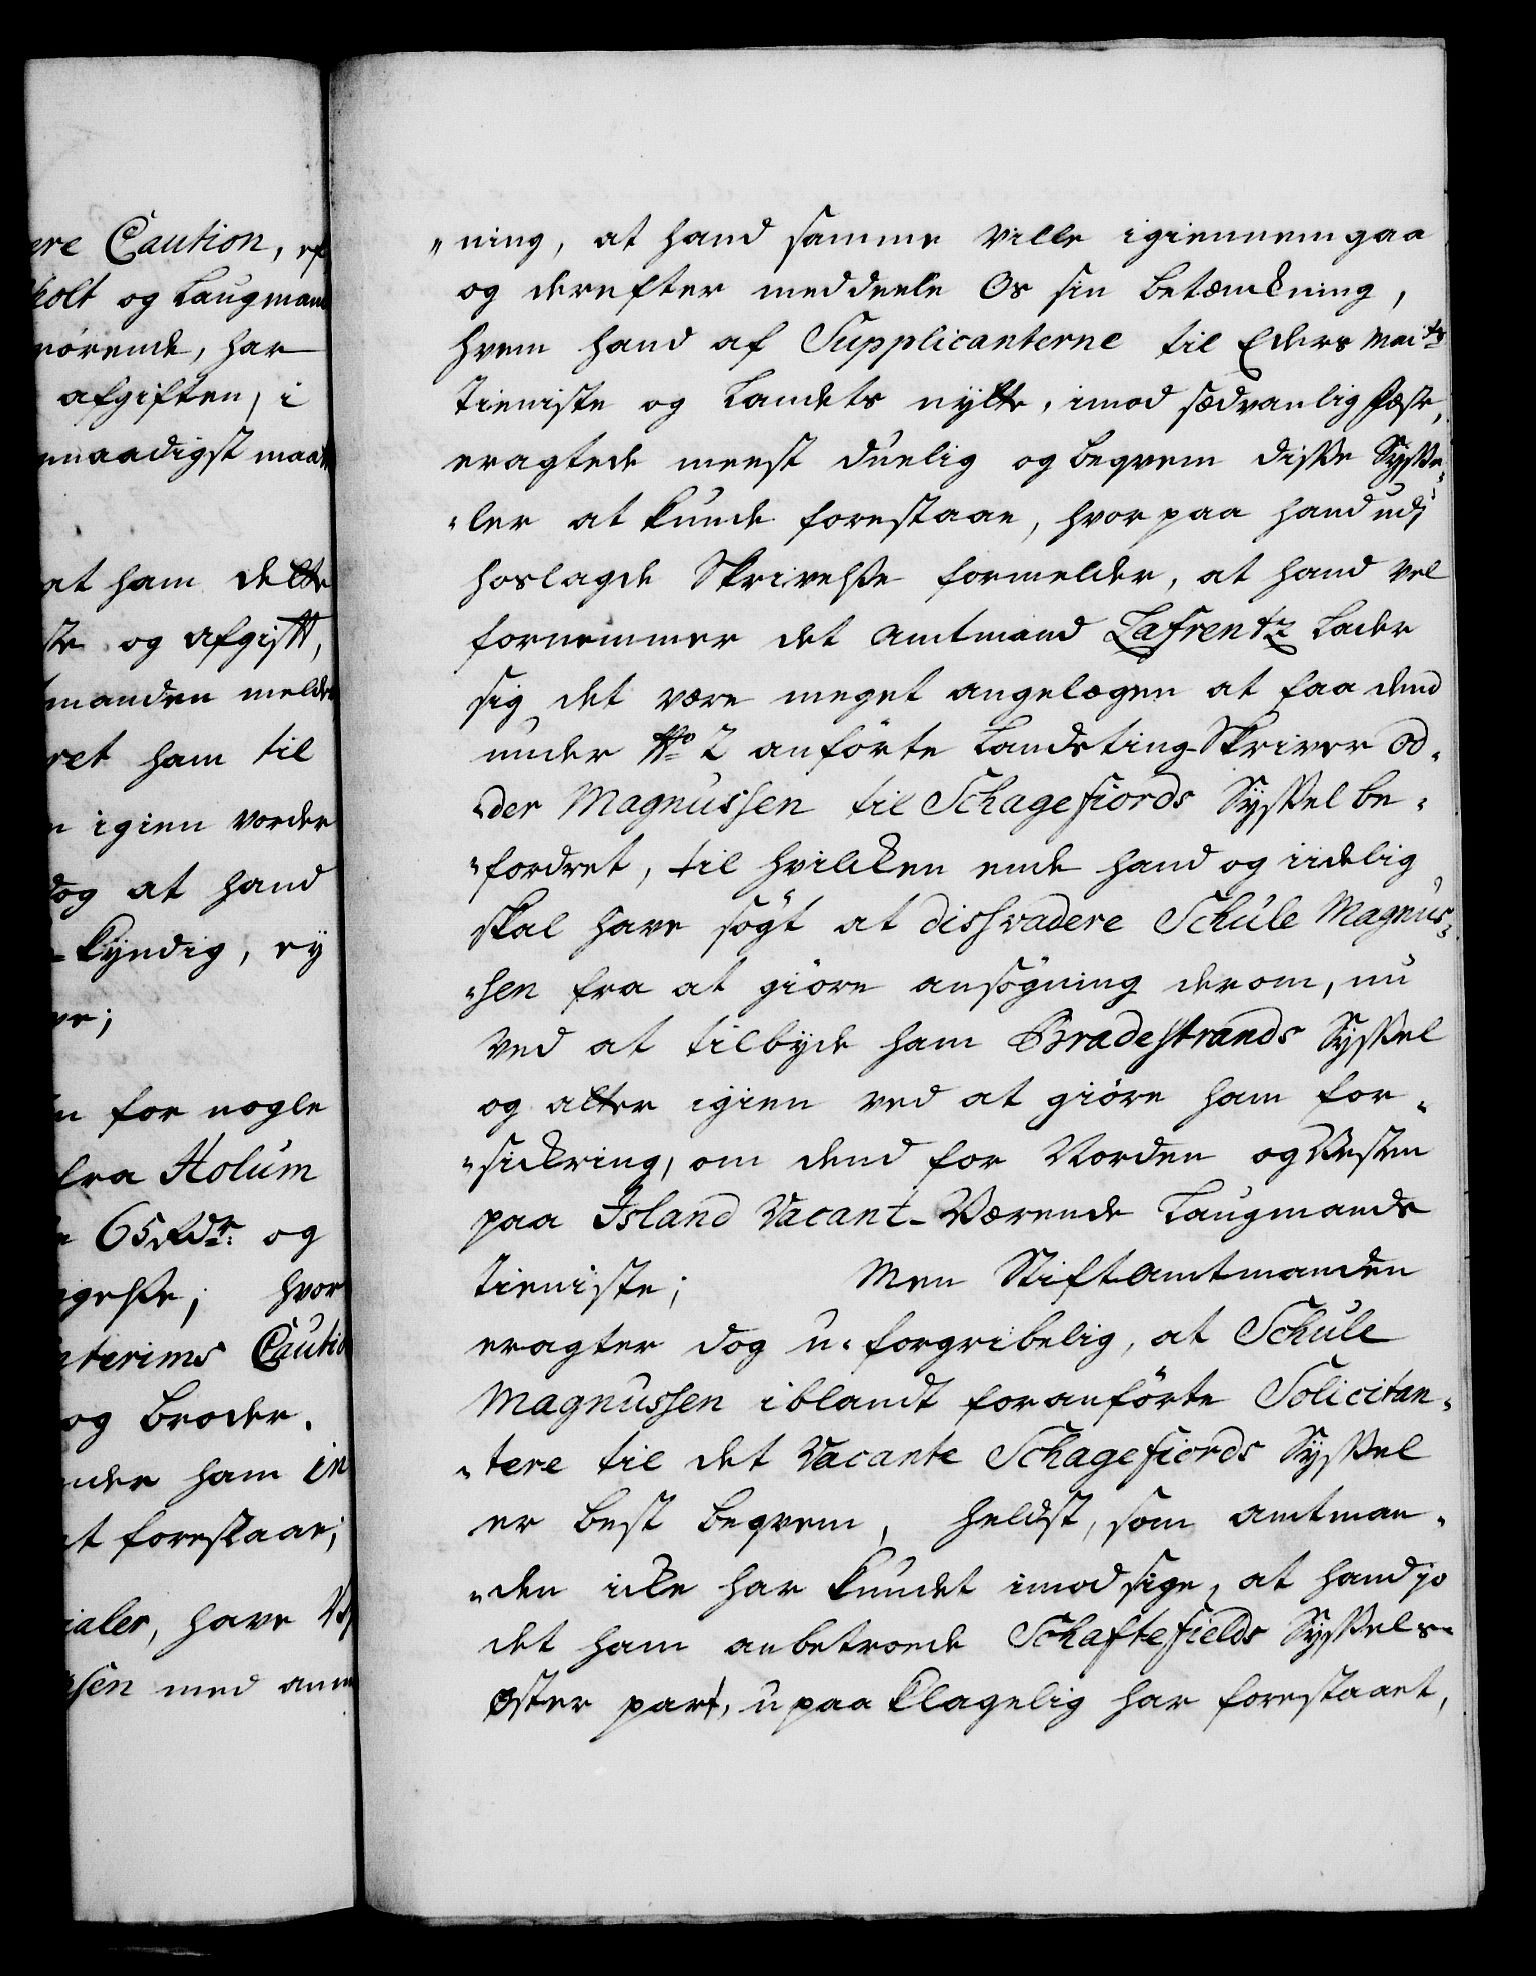 ere Caution, ef
holt og Laugmand
rørende, har
afgiften, i
naadigst maatte
at ham dette
ste og afgift,
manden melder
ret ham til
n igien vorder
dog at hand
kyndig, ey
ve;
n for nogle
fra Holum
65 Rdr: og
gelse; hvor
nterims Cautio
og Broder.
nder ham in
at forestaae;
ialer, have
sen med ann
"ning, at hand samme ville igiennemgaa
og derefter meddeele Os sin betænckning,
hvem hand af Supplicanterne til Eders Maits
Tieniste og Landets nytte, imod sædvanlig fæste,
eragtede meest duelig og beqvem disse Sysse-
"ler at kunde forestaae, hvorpaa hand udi
hoslagde Skrivelse formelder, at hand vel
fornemmer det Amtmand Lafrentz lader
sig det være meget angelægen at faa dend
under No 2 anførte Landsting Skriver Od-
"der Magnussen til Schagefiords Syssel be-
"fordret, til hvilcken ende hand og iidelig
skal have søgt at disSvadere Schule Magnus-
"sen fra at giøre ansøgning derom, nu
ved at tilbyde ham Bradestrands Syssel
og atter igien ved at giøre ham for-
"sickring, om dend for Norden og Vesten
paa Island Vacant-Værende Laugmands
Tieniste; Men Stiftamtmanden
eragter dog u-forgribelig, at Schule
Magnussen iblandt foranførte Solicitan-
"tere til det Vacante Schagefiords Syssel
er best beqvem, heldst, som Amtman-
"den icke har kundet imodsige, at hand jo
det ham anbetroede Schaftefields Syssels-
Øster part, upaaklagelig har forestaaet,